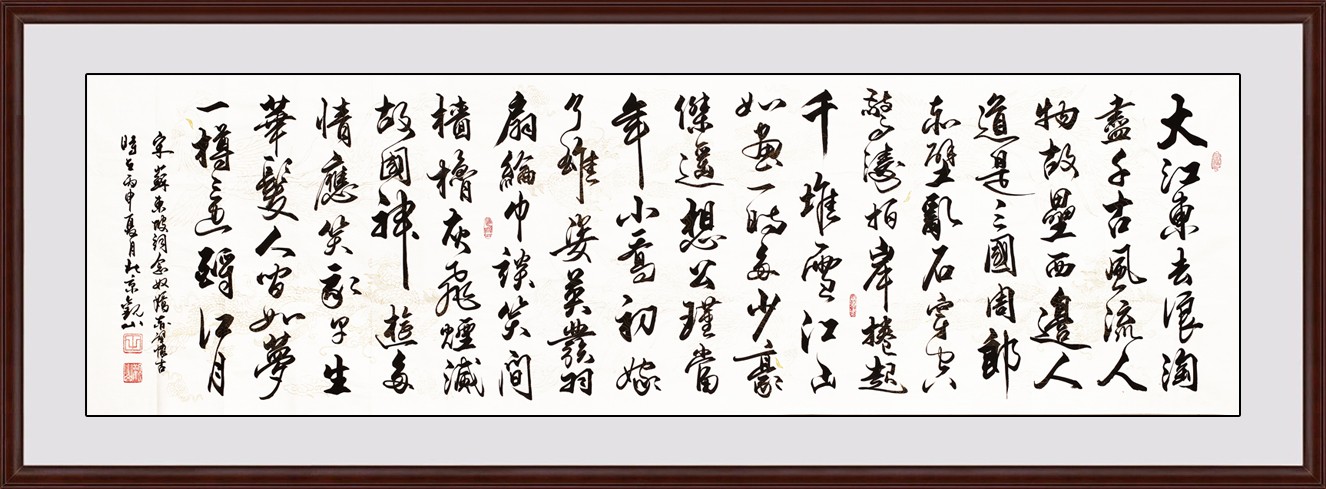 大江東去浪淘
盡千古風流人
物故壘西邊人
道是三國周郎
赤壁亂石穿空
驚濤拍岸捲起
千堆雪江山
如畫一時多少豪
傑遥想公瑾當
年小喬初嫁
了雄姿英發羽
扇綸巾談笑間
檣櫓灰飛煙滅
故國神遊多
情應笑我早生
華髮人間如夢
一樽還酹江月
宋蘇東坡詞念奴嬌赤壁懷古
時在丙申夏月北京觀山